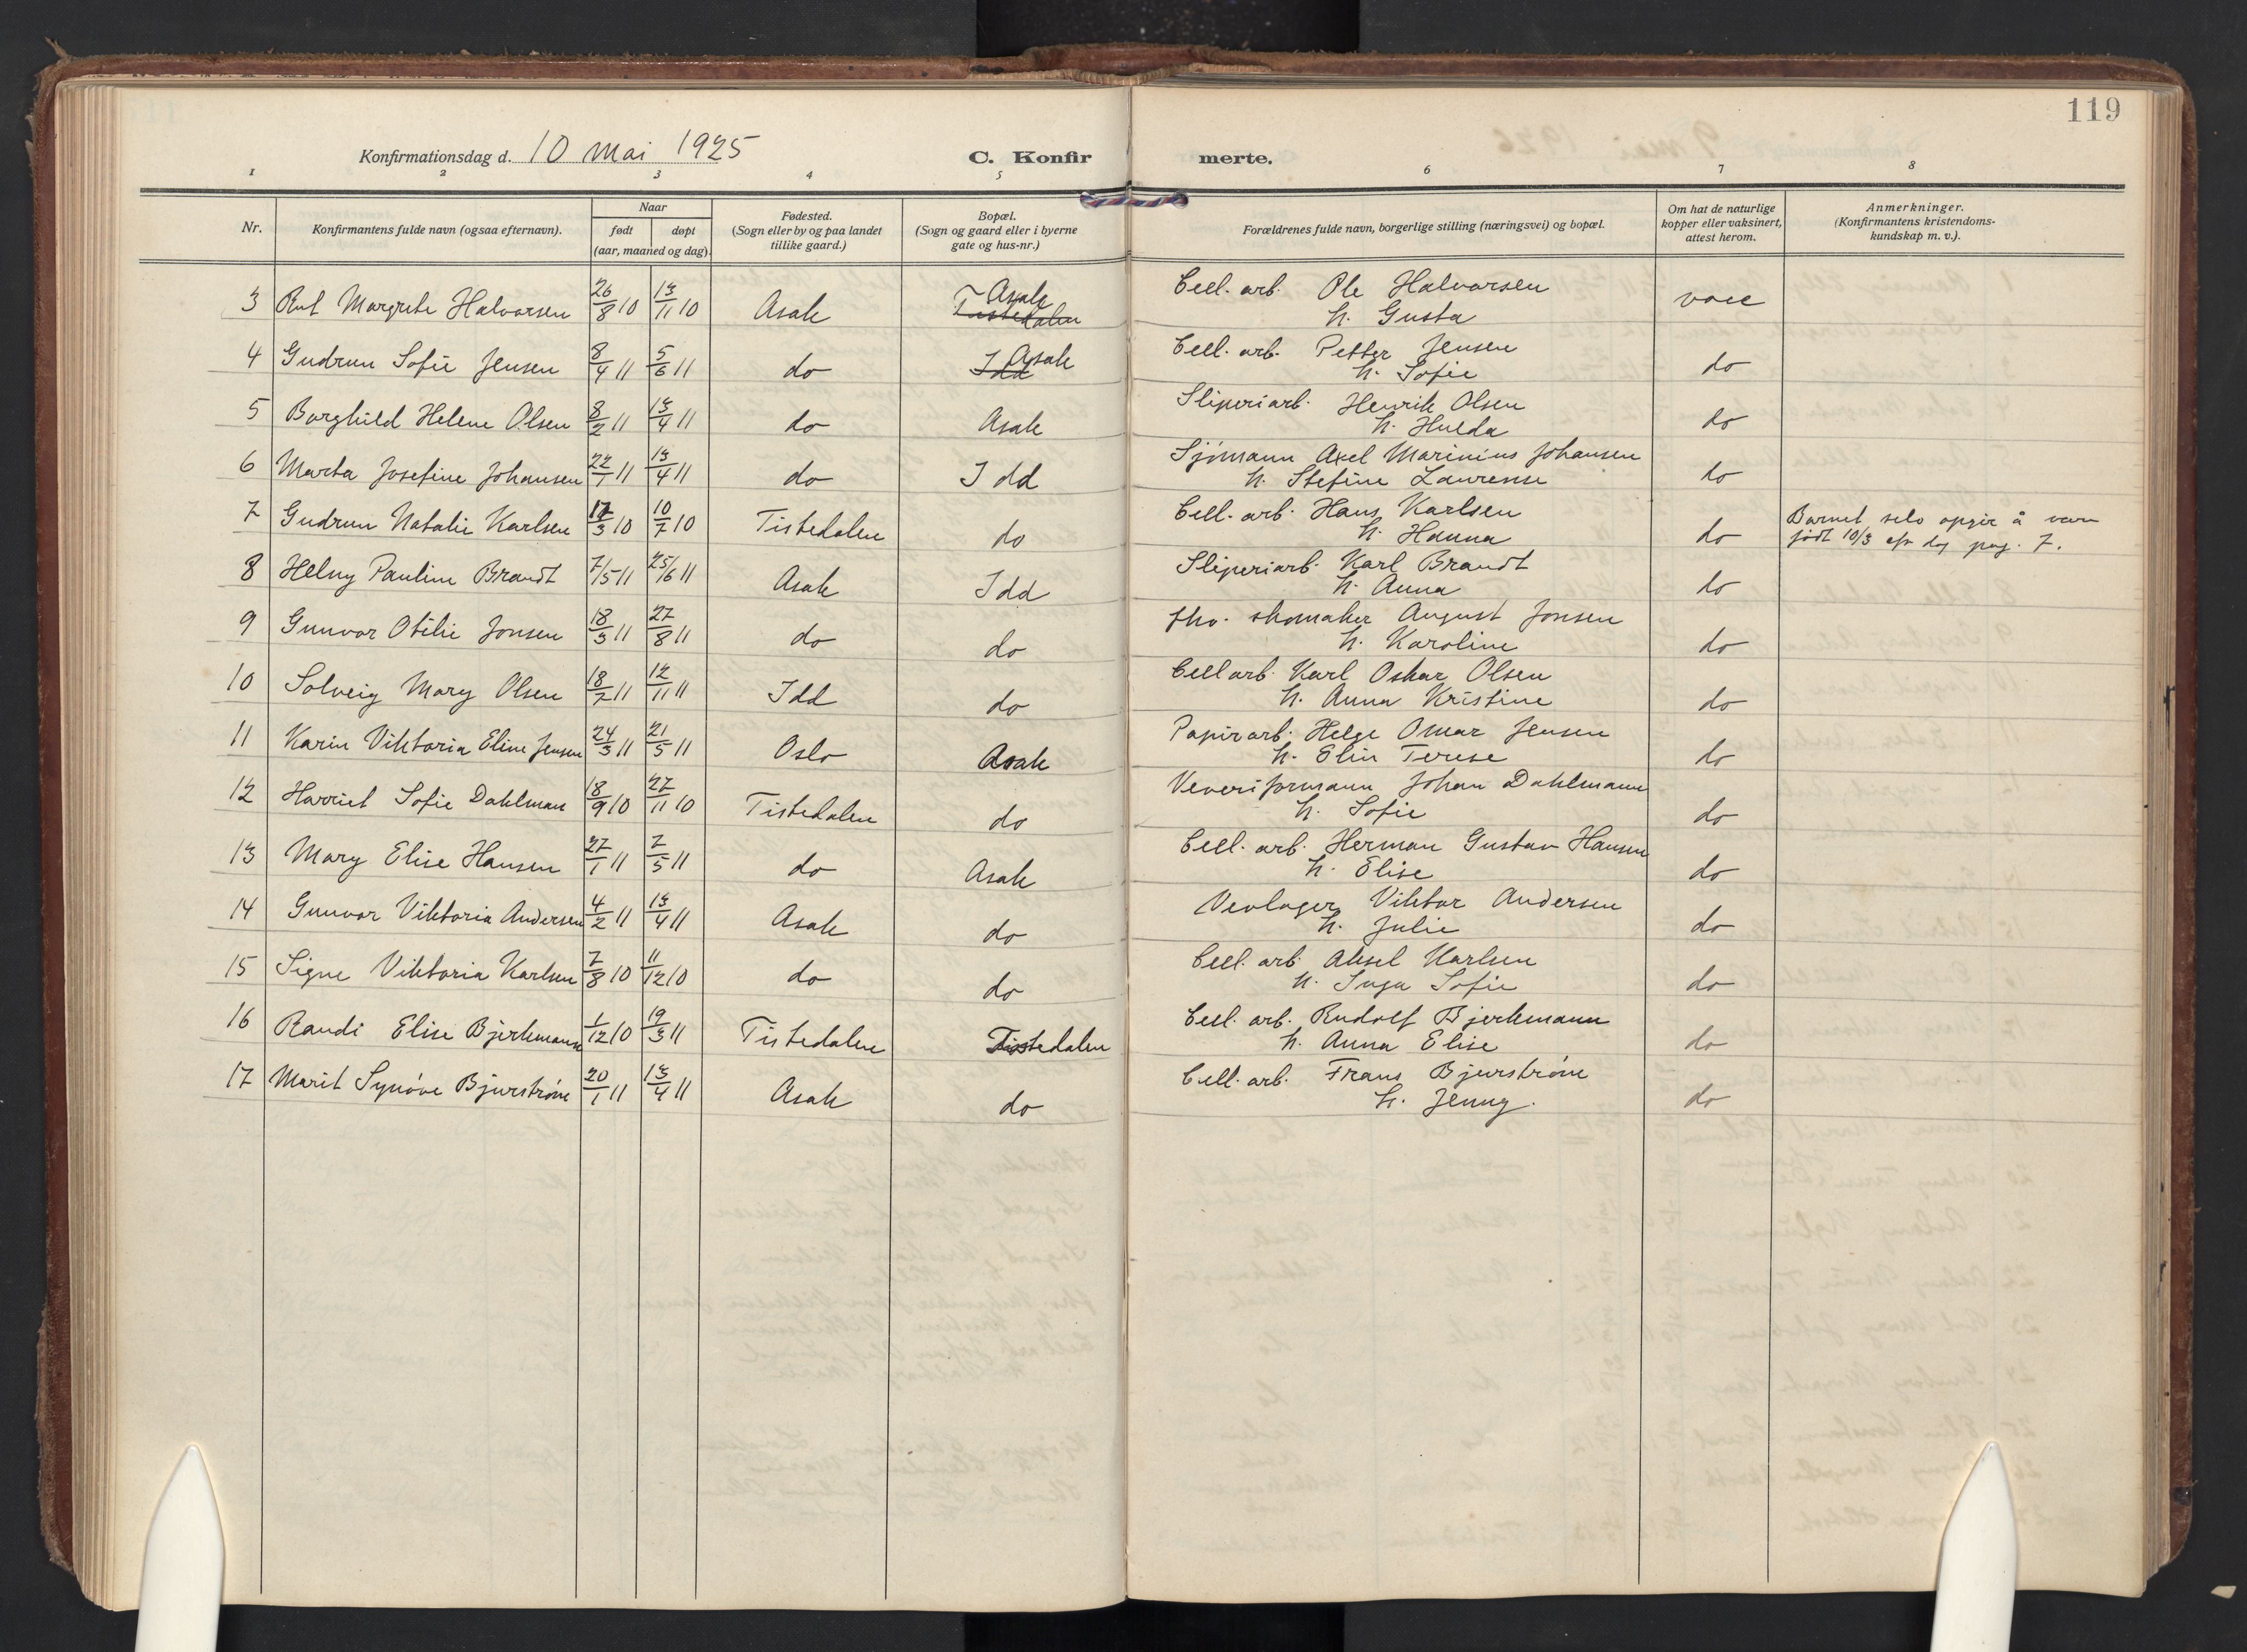 119
Konfirmationsdag d. 10 mai 1925
C. Konfir merte.
1 2 3 4 5 6 7 8
Nr.
Konfirmantens fulde navn (ogsaa efternavn).
Naar
født døpt
(aar, maaned og dag).
Fødested.
(Sogn eller by og paa landet
tillike gaard.)
Bopæl.
(Sogn og gaard eller i byerne
gate og hus-nr.)
Forældrenes fulde navn, borgerlige stilling (næringsvei) og bopæl.
Om hat de naturlige
kopper eller vaksinert,
attest herom.
Anmerkninger.
(Konfirmantens kristendoms-
kundskap m. v.).
3 Rut Margrete Halvorsen 26/8 10 13/11 10 Asak Tistedalen Asak Cell. arb. Ole Halvorsen vacc
h. Gusta
4 Gudrun Sofie Jensen 8/4 11 5/6 11 do Idd Asak Cell. arb. Petter Jensen do
h. Sofie
5 Borghild Helene Olsen 8/2 11 13/4 11 do Asak Sliperiarb. Henrik Olsen do
h. Hulda
6 Marta Josefine Johansen 22/1 11 13/4 11 do Idd Sjømann Axel Marinius Johansen do
h. Stefine Laurense
7 Gudrun Natalie Karlsen 17/3 10 10/7 10 Tistedalen do Cell. arb. Hans Karlsen do Barnet selv opgir å være
h. Hanna født 10/3 pag. 7.
8 Helny Pauline Brandt 7/5 11 25/6 11 Asak Idd Sliperiarb. Karl Brandt do
h. Anna
9 Gunvor Otilie Jonsen 18/3 11 27/8 11 do do fhv. skomaker August Jonsen do
h. Karoline
10 Solveig Mary Olsen 18/2 11 12/11 11 Idd do Cell arb. Karl Oskar Olsen do
h. Anna Kristine
11 Karin Viktoria Eline Jensen 24/3 11 21/5 11 Oslo Asak Papirarb. Helge Omar Jensen do
h. Elin Terese
12 Harriet Sofie Dahlman 18/9 10 27/11 10 Tistedalen do Veveriformann Johan Dahlmann do
h. Sofie
13 Mary Elise Hansen 27/1 11 7/5 11 do Asak Cell. arb. Herman Gustav Hansen do
h. Elise
14 Gunvor Viktoria Andersen 4/2 11 13/4 11 Asak do Vevlager Viktor Andersen do
h. Julie
15 Signe Viktoria Karlsen 7/8 10 11/12 10 do do Cell. arb. Aksel Karlsen do
h. Inga Sofie
16 Randi Elise Bjerkmann 1/12 10 19/3 11 Tistedalen Tistedalen Cell. arb. Rudolf Bjerkmann do
h. Anna Elise
17 Marit Synøve Bjurstrøm 20/1 11 13/4 11 Asak do Cell. arb. Frans Bjurstrøm do
h. Jenny.